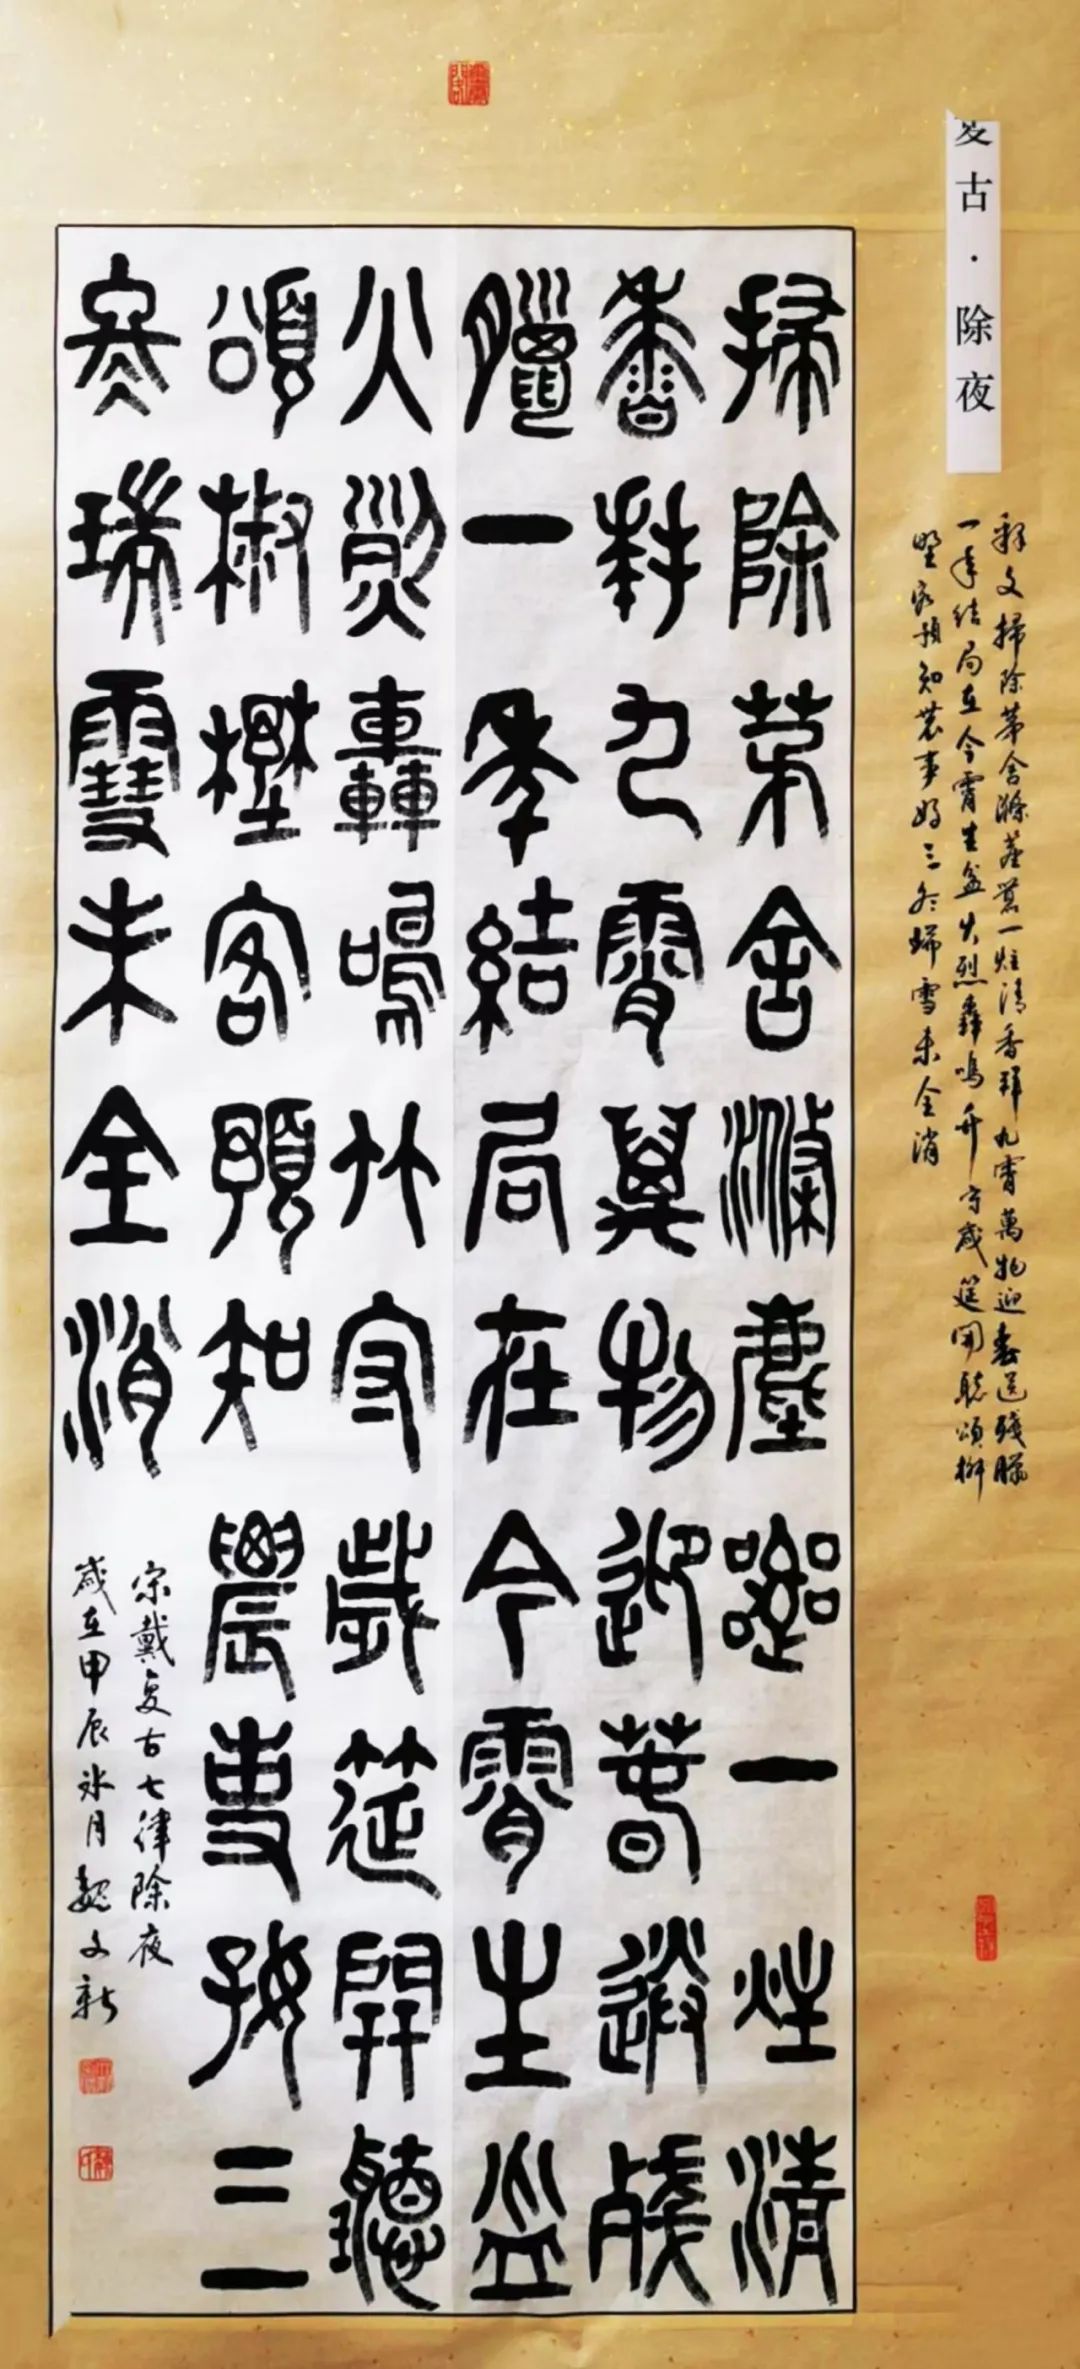 复古·除夜
釋文掃除茅舍滌塵囂一炷清香拜九霄萬物迎春送殘臘
一年结局在今宵生盆火烈轟鳴竹守歲筵開聽頌椒
壄客預知農事好三冬瑞雪未全消
掃除茅舍滌塵囂一炷清
香拜九霄萬物迎春送殘
臘一年結局在今宵生盆
火烈轟鳴竹守歲筵開聽
頌椒壄客預知農事好三
冬瑞雪未全消
宋戴复古七律除夜
歲在甲辰冰月魏文新